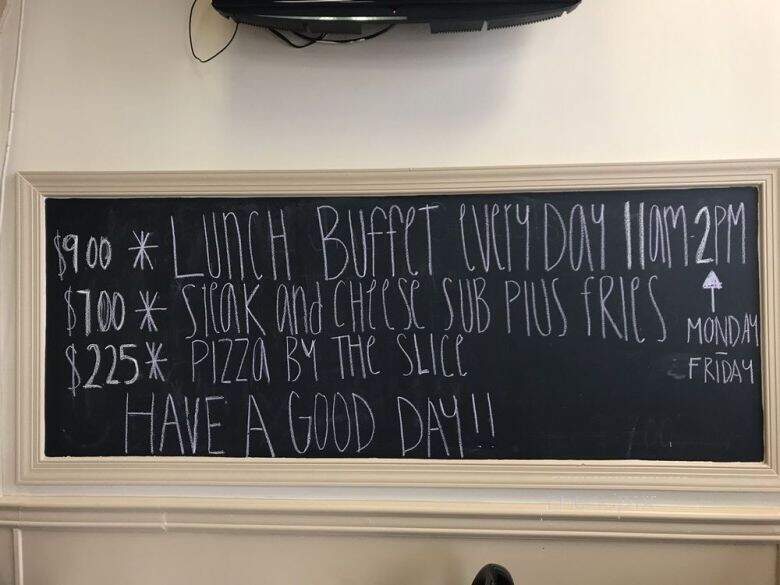 $9.00 * LUNCH BUFFET EVERY DAY 11AM-2PM
$7.00 * STEAK and CHEESE SUB PLUS FRIES
$2.25 * PIZZA BY THE SLICE
HAVE A GOOD DAY!!
↑
MONDAY
–
FRIDAY